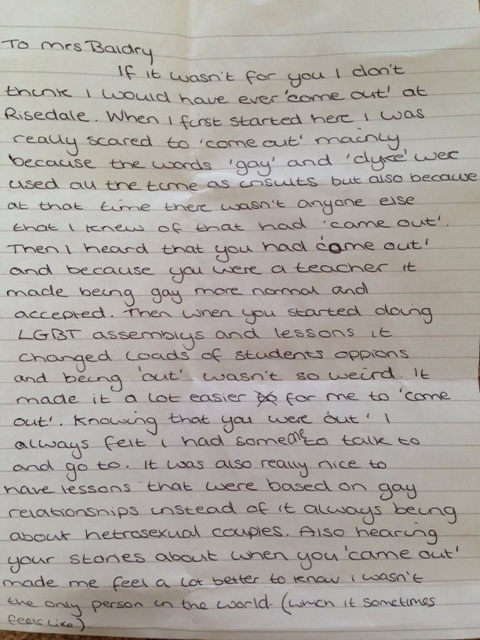 To Mrs Baldry
If it wasn't for you I don't
think I would have ever 'come out' at
Risedale. When I first started here I was
really scared to 'come out' mainly
because the words 'gay' and 'dyke' wer
used all the time as insults but also because
at that time there wasn't anyone else
that I knew of that had 'came out'.
Then I heard that you had 'come out'
and because you were a teacher it
made being gay more normal and
accepted. Then when you started doing
LGBT assemblys and lessons it
changed loads of students oppions
and being 'out' wasn't so weird. It
made it a lot easier for me to 'come
out'. Knowing that you were 'out' I
always felt I had someone to talk to
and go to. It was also really nice to
have lessons that were based on gay
relationships instead of it always being
about hetrosexual couples. Also hearing
your stories about when you 'came out'
made me feel a lot better to know I wasn't
the only person in the world. (which it sometimes
feels like)